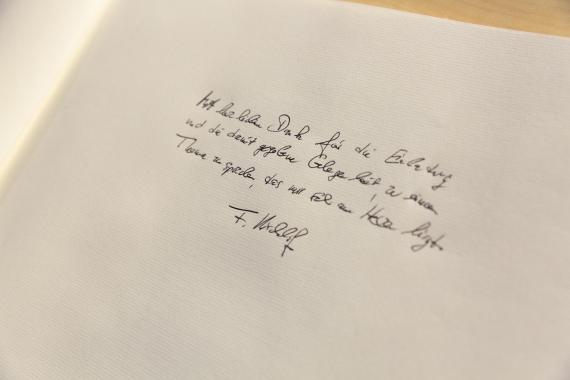 Mit herzlichem Dank für die Einladung
und die damit gegebene Gelegenheit, zu einem
Thema zu sprechen, das mir sehr am Herzen liegt.
F.